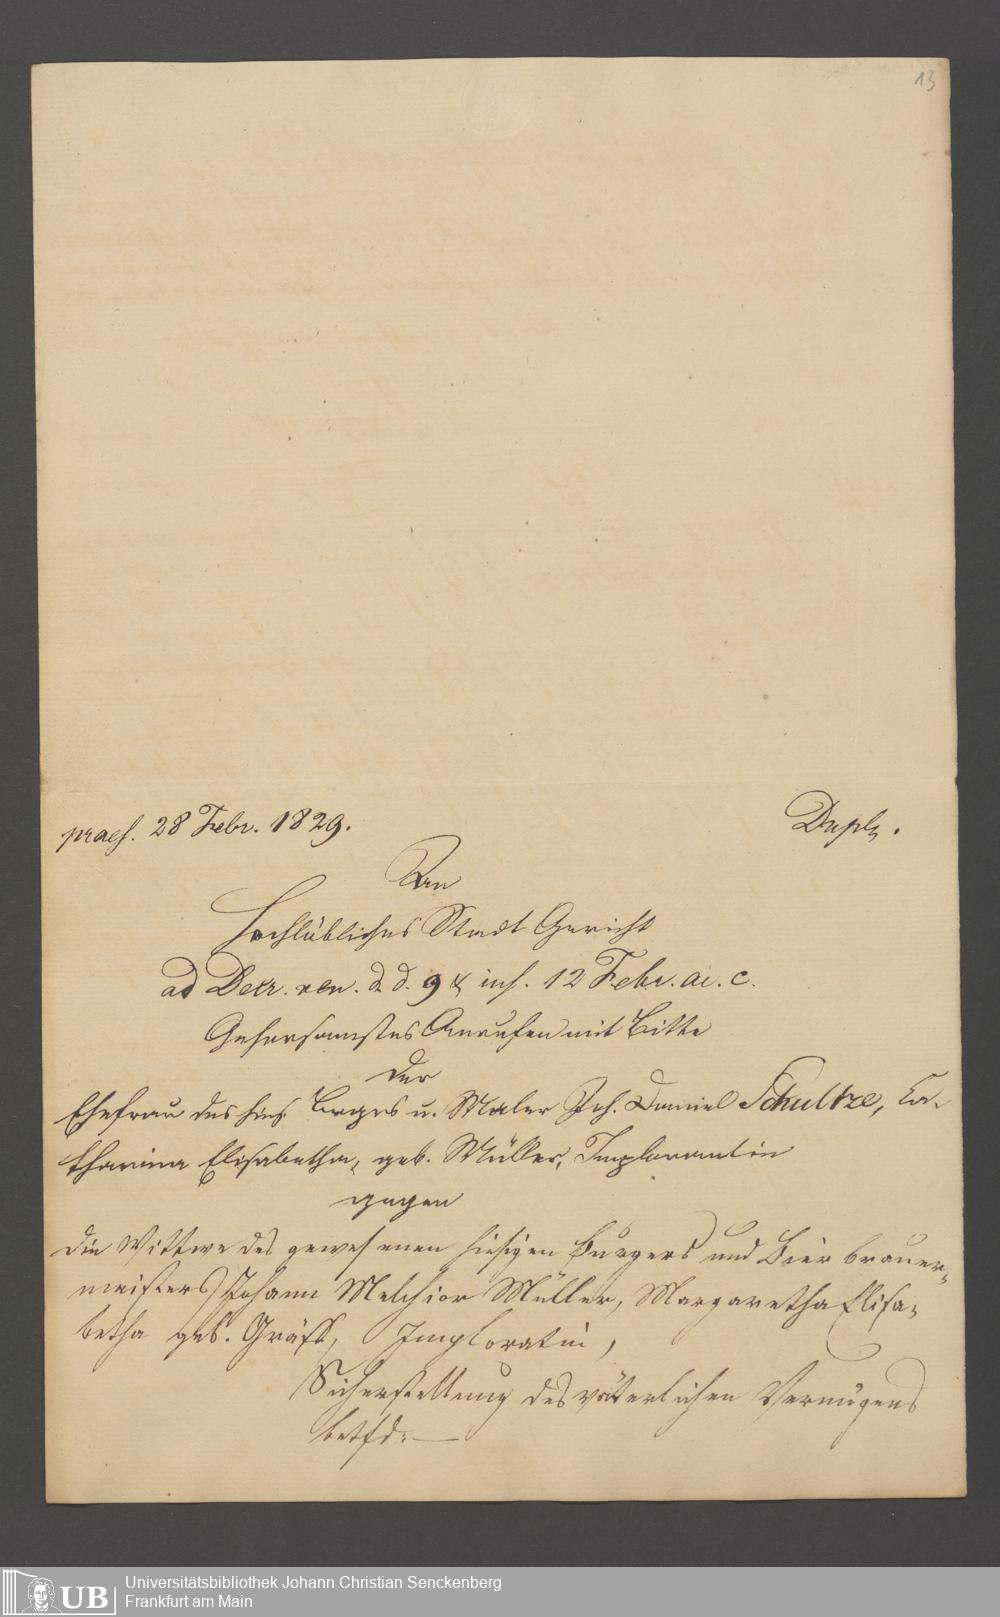 13
praes. 28 Febr. 1829.
Dupl.
An
Hochlöbliches Stadt Gericht
ad Decr. ven. d. d. 9 & ins. 12 Febr. a. c.
Gehorsamstes Anrufen mit Bitte
der
Ehefrau des hies. Bürgers u. Maler Joh. Daniel Schultze, Ca-
tharina Elisabetha, geb. Müller, Implorantin
gegen
die Wittwe des gewesenen hiesigen Bürgers und Bierbrauer-
meisters Johann Melchior Müller, Margaretha Elisa-
betha geb. Gräff, Imploratin,
Sicherstellung des väterlichen Vermögens
betfd:
UB
Universitätsbibliothek Johann Christian Senckenberg
Frankfurt am Main